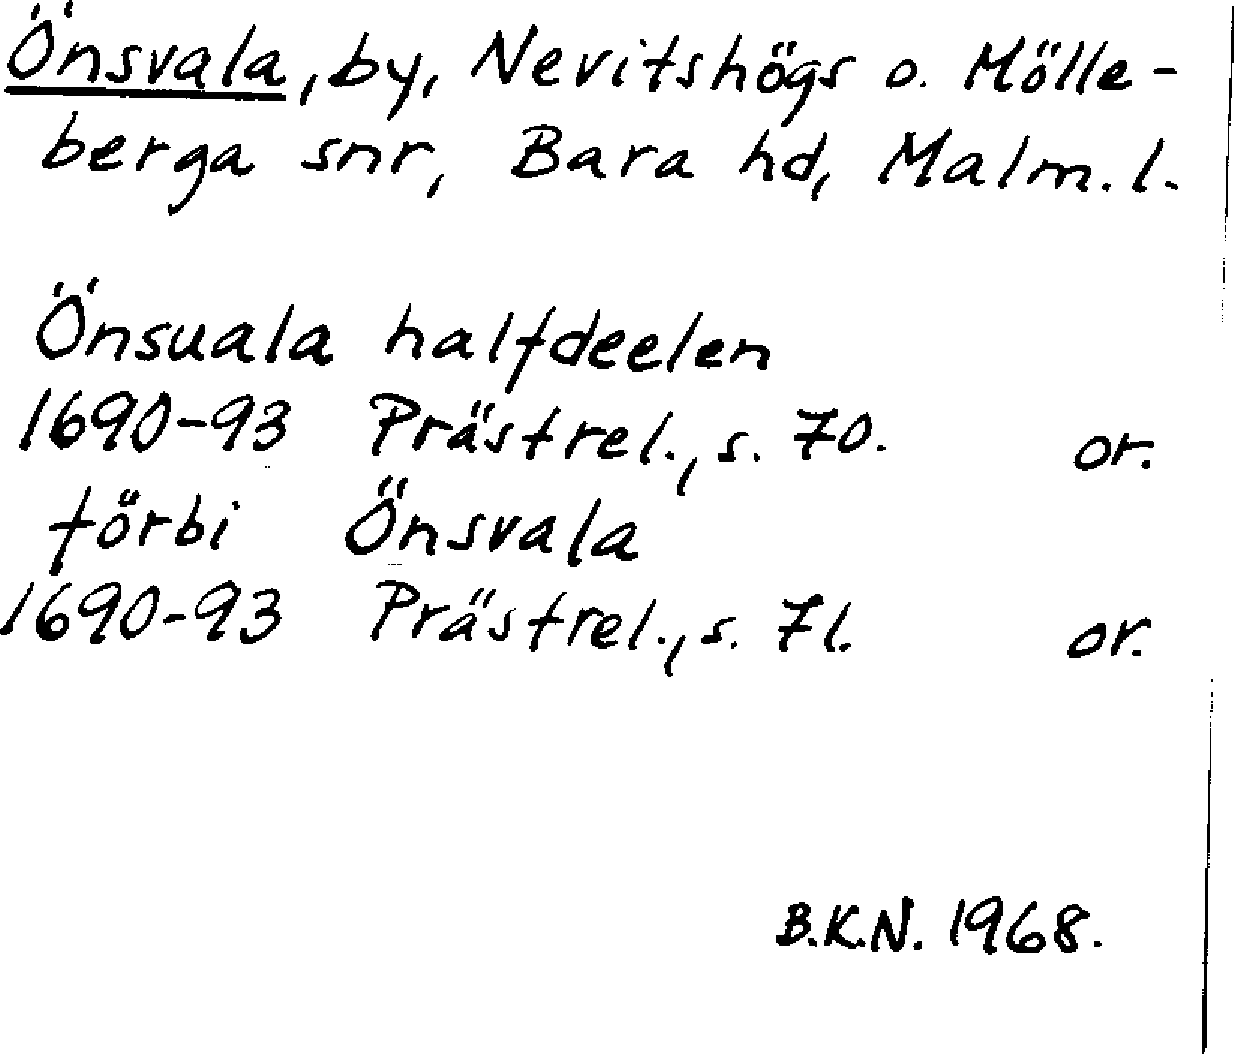 Önsvala, by, Nevitshögs o. Mölle-
berga snr, Bara hd, Malm. l.
Önsuala halfdeelen
1690-93 Prästrel., s. 70. or.
förbi Önsvala
1690-93 Prästrel., s. 71. or.
B.K.N. 1968.